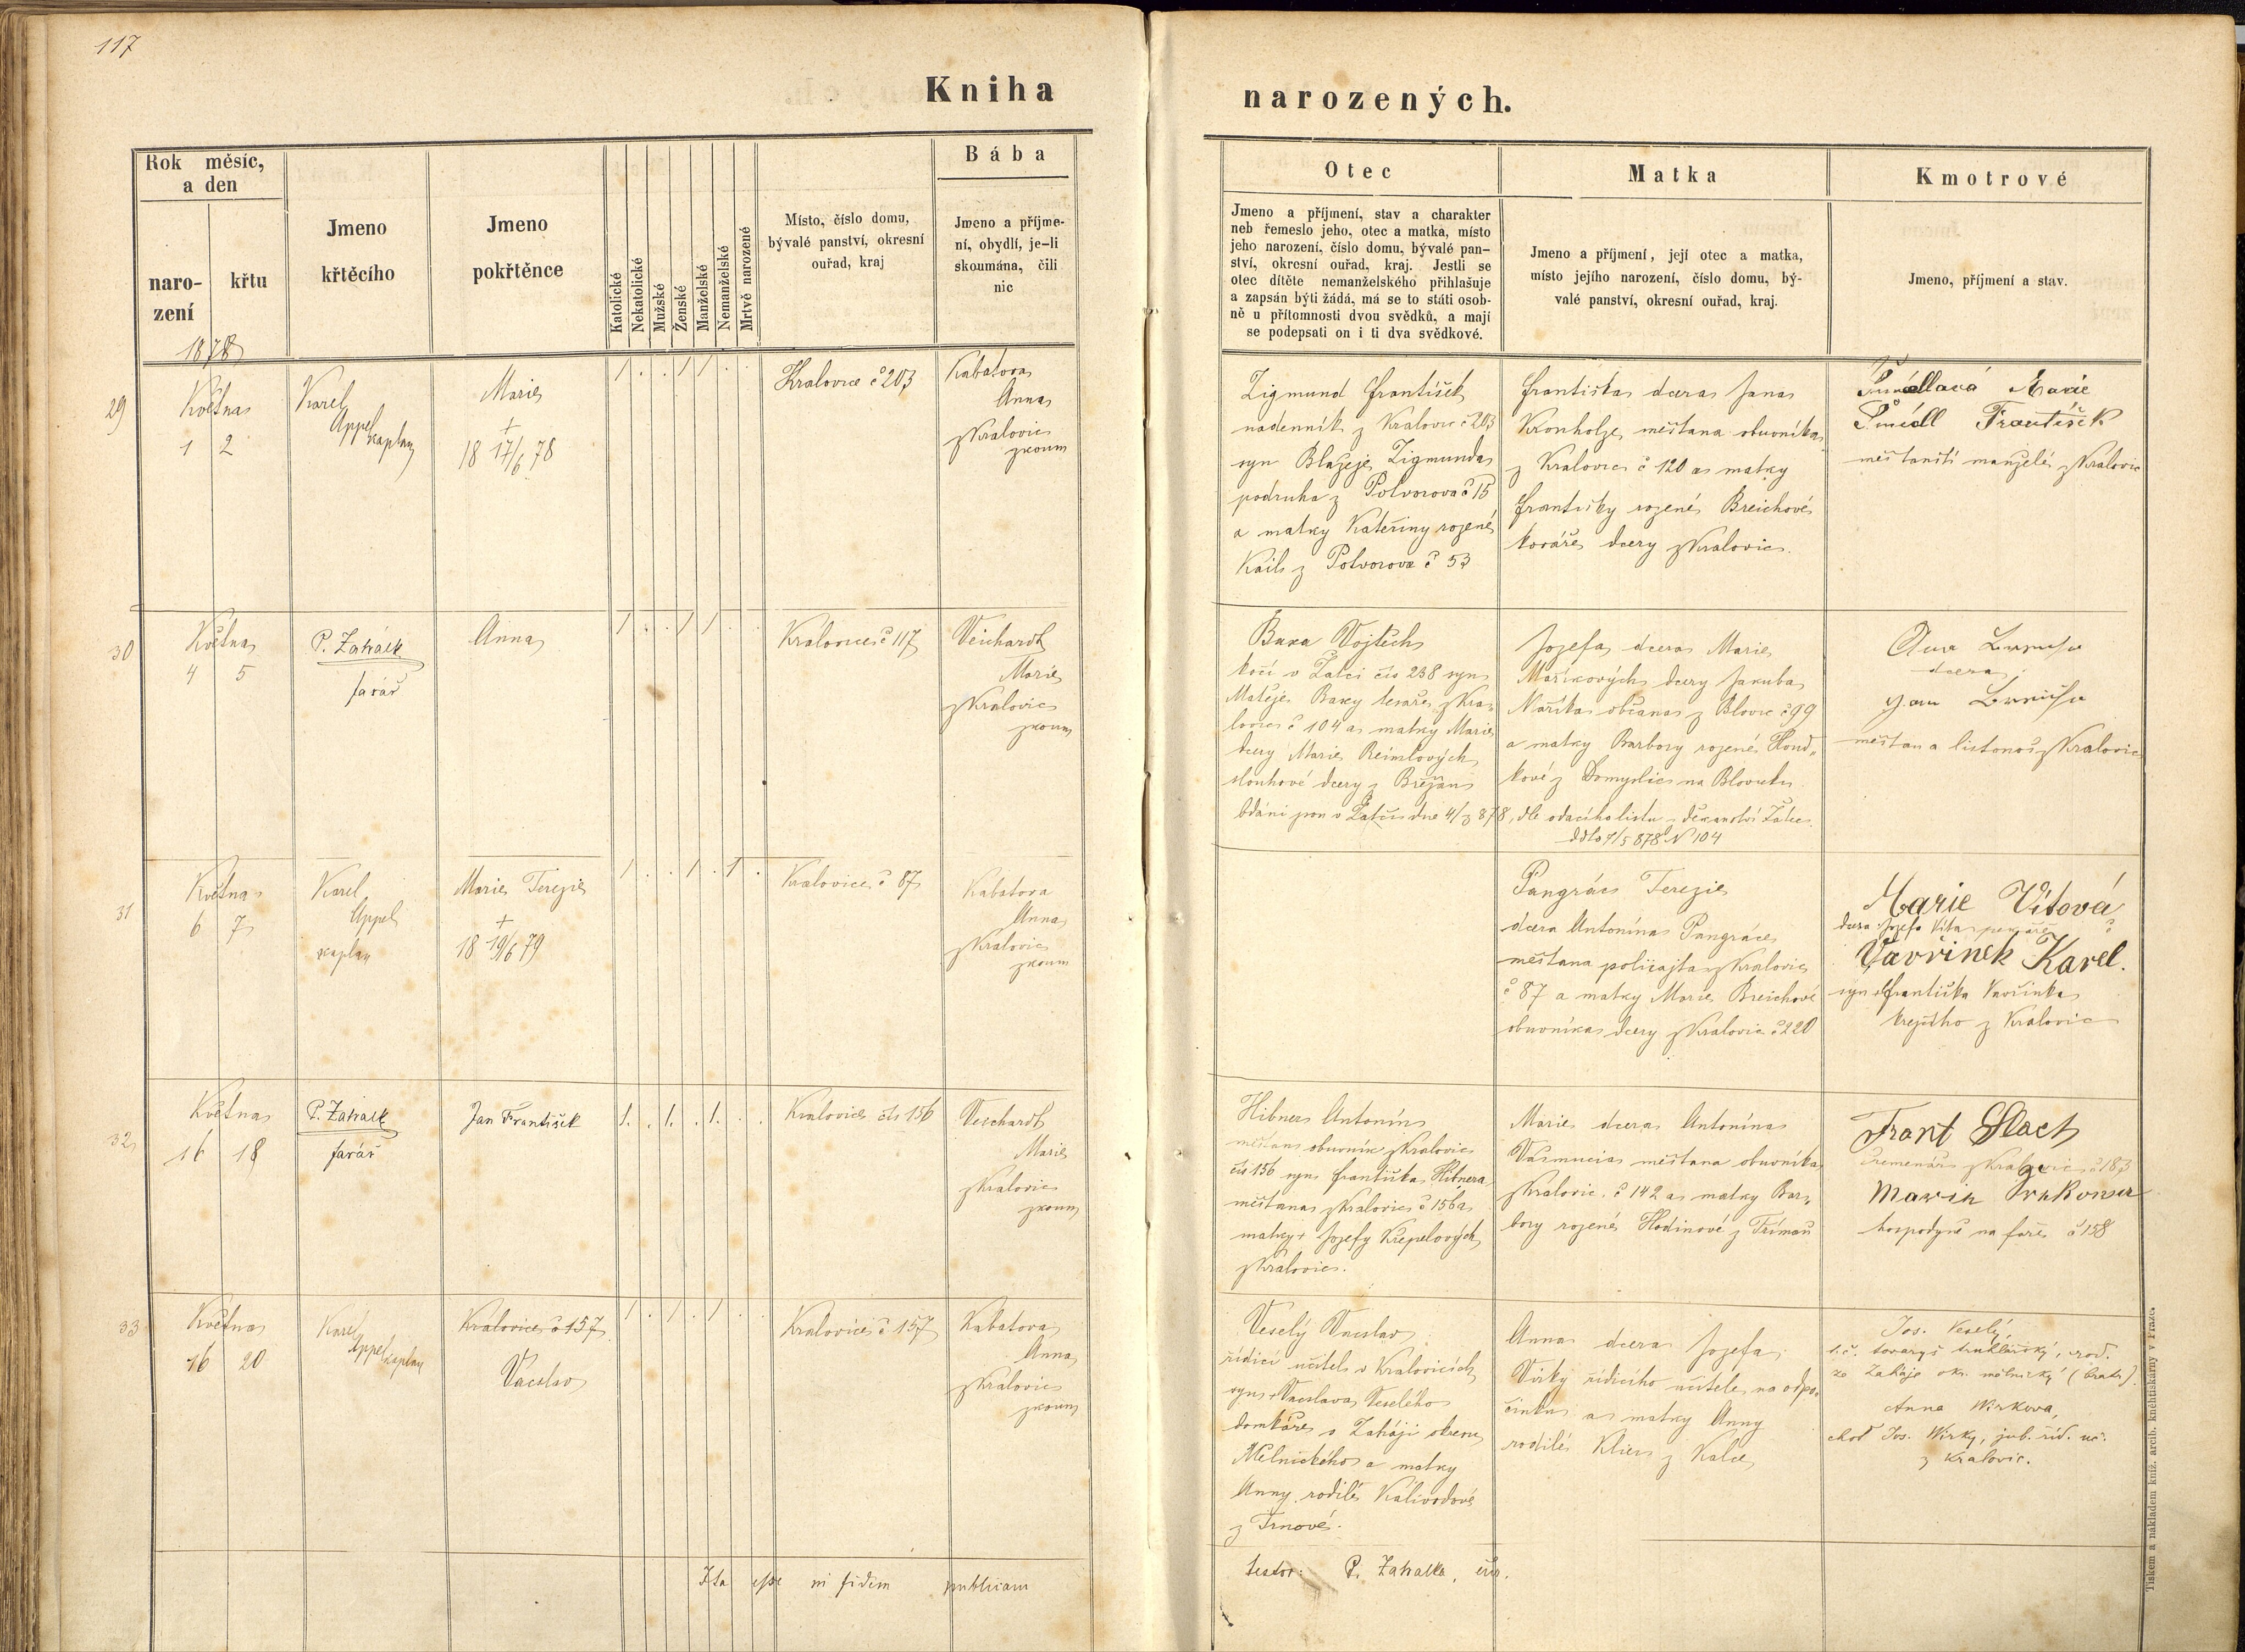 117
Kniha
narozených.
Rok měsíc,
a den
naro-
zení
křtu
1878
Jmeno
křtěcího
Jmeno
pokřtěnce
Katolické
Nekatolické
Mužské
Ženské
Manželské
Nemanželské
Mrtvě narozené
Místo, číslo domu,
bývalé panství, okresní
ouřad, kraj
Bába
Jmeno a příjme-
ní, obydlí, je-li
skoumána, čili
nic
Otec
Jmeno a příjmení, stav a charakter
neb řemeslo jeho, otec a matka, místo
jeho narození, číslo domu, bývalé pan-
ství, okresní ouřad, kraj. Jestli se
otec dítěte nemanželského přihlašuje
a zapsán býti žádá, má se to státi osob-
ně u přítomnosti dvou svědků, a mají
se podepsati on i ti dva svědkové.
Matka
Jmeno a příjmení, její otec a matka,
místo jejího narození, číslo domu, bý-
valé panství, okresní ouřad, kraj.
Kmotrové
Jmeno, příjmení a stav.
29
Května
1 2
Karel
Appel
kaplan
Marie
+
18 17/6 78
1 . . 1 1 . .
Kralovice č 203
Kabatova
Anna
z Kralovic
zkoum
Zigmund František
nadenník z Kralovic č 203
syn Blažeje Zigmunda
podruha z Potvorova č 15
a matky Kateřiny rozené
Kail z Potvorova č 53
Františka dcera Jana
Kronholze, měštana obuvníka
z Kralovic č 120 a matky
Františky rozené Breichové
kováře dcery z Kralovic.
Šmídlová Marie
Šmídl František
měštanští manželé z Kralovic
30
Května
4 5
P. Zahálk
farář
Anna
1 . . 1 1 . .
Kralovice č 117
Veichardt
Marie
z Kralovic
zkoum
Baxa Vojtěch
kočí v Žatci čís 238 syn
Matěje Baxy tesaře z Kra-
lovic č 104 a matky Marie
dcery Marie Reimlových
slouhové dcery z Břežan
Jozefa dcera Marie
Maříkových dcery Jakuba
Maříka občana z Blovic č 99
a matky Barbory rozené Hond„
kové z Domyslic na Blovicku
oddáni jsou v Žatci dne 4/3 878, dle oddacího listu z děkanství Žatec
ddto 7/5 878 N 104
dcera
měštan a listonoš z Kralovic
31
Května
6 7
Karel
Appel
kaplan
Marie Terezie
+
18 19/6 79
1 . . 1 . 1 .
Kralovice č 87
Kabatova
Anna
z Kralovic
zkoum
Pangrác Terezie
dcera Antonína Pangráce
měštana policajta z Kralovic
č 87 a matky Marie Breichové
obuvníka dcery z Kralovic č 220
Marie Vítová
dcera Jozefa Víta pekaře
Vavřinek Karel.
syn Františka Vavřinka
krejčího z Kralovic
32
Května
16 18
P. Zahálk
farář
Jan František
1. . 1. . 1. . .
Kralovice čís 156
Veichardt
Marie
z Kralovic
zkoum
Hibner Antonín
měštan obuvník z Kralovic
čís 156 syn Františka Hibnera
měštana z Kralovic č 156 a
matky + Jozefy Křepelových
z Kralovic.
Marie dcera Antonína
měštana obuvníka
z Kralovic č 142 a matky Bar„
bory rozené Hodinové z Tříman
Frant Šlach
řemenář z Kralovic č 183
hospodyně na faře č 158
33
Května
16 20
Karel
Appel kaplan
Kralovice č 157
Vácslav
1 . 1 . 1 . .
Kralovice č 157
Kabatova
Anna
z Kralovic
zkoum
Veselý Vácslav
řídící učitel v Kralovicích
syn + Vacslava Veselého
domkáře v Zahájí okresu
Mělnického a matky
Anny rodilé Kalivodové
z Trnové.
Anna dcera Jozefa
Virky řídícího učitele na odpo-
činku a matky Anny
rodilé Klier z Kalce
Jos. Veselý,
t. č. tovaryš truhlářský, rod.
ze Zaháje okr. mělnický (bratr).
Anna Wirkova,
choť Jos. Wirky, jub. říd. uč.
z Kralovic.
Ita esse in fidem publicam
testor: P. Zahalka,
Tiskem a nákladem kníž. arcib. knihtiskárny v Praze.